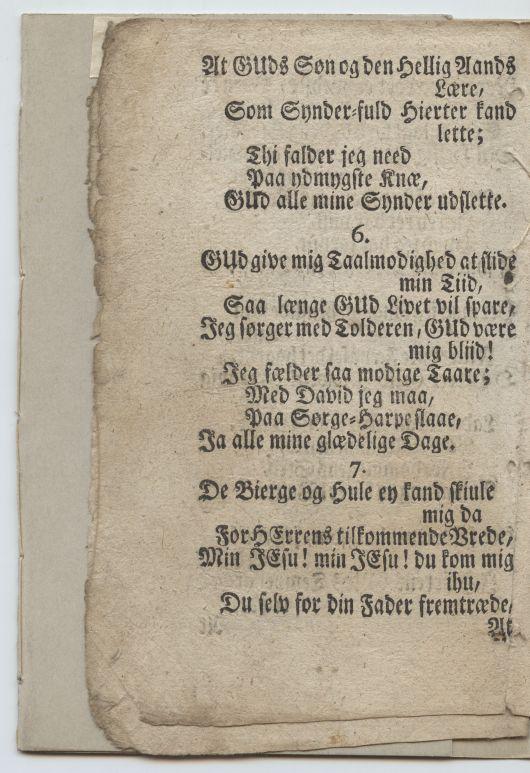 At GUds Søn og den Hellig Aands
Lære,
Som Synder-fuld Hierter kand
lette;
Thi falder jeg need
Paa ydmygste Knæ,
GUd alle mine Synder udslette.
6.
GUd give mig Taalmodighed at slide
min Tiid,
Saa længe GUd Livet vil spare,
Jeg sørger med Tolderen, GUd være
mig bliid!
Jeg fælder saa modige Taare;
Med David jeg maa,
Paa Sørge-Harpe slaae,
Ja alle mine glædelige Dage.
7.
De Bierge og Hule ey kand skiule
mig da
For HErrens tilkommende Vrede,
Min JEsu! min JEsu! du kom mig
ihu,
Du selv for din Fader fremtræde,
At